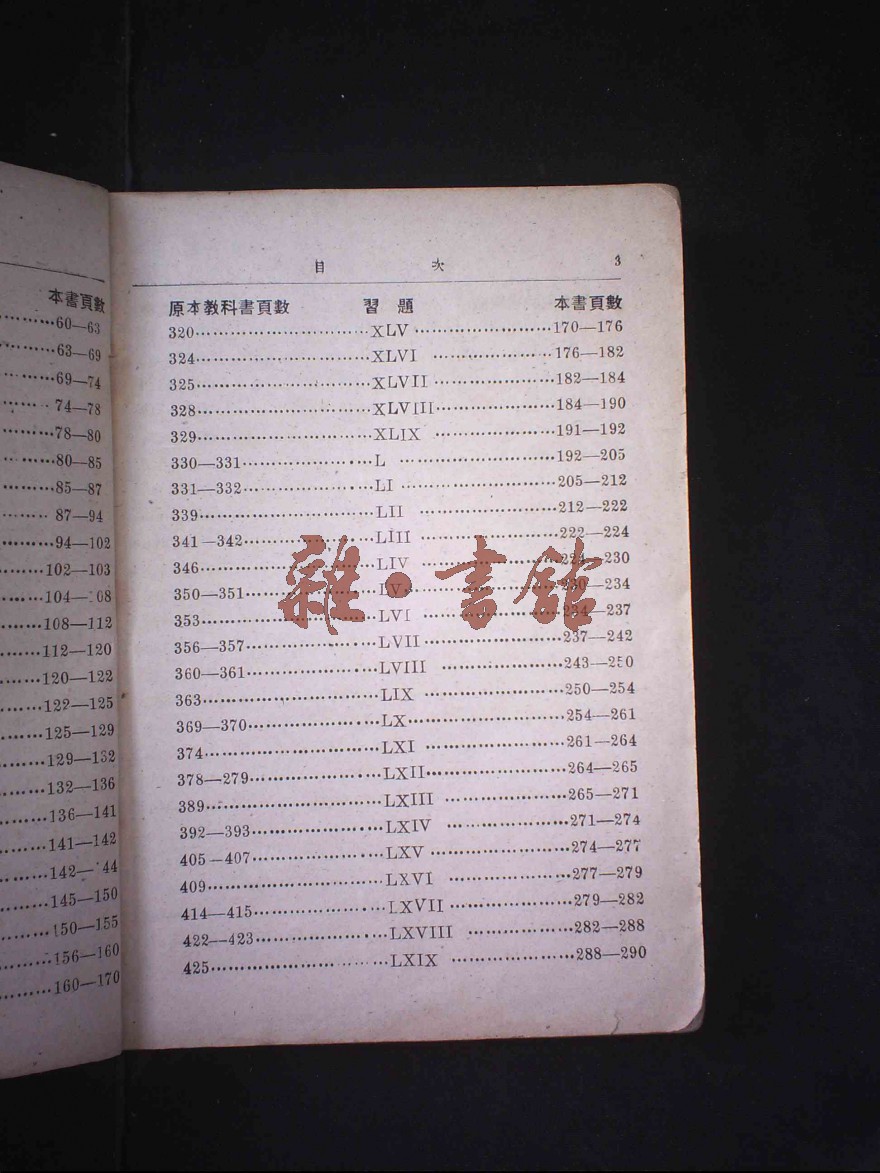 本書頁數
60—63
63—69
69—74
74—78
78—80
80—85
85—87
87—94
94—102
102—103
104—108
108—112
112—120
120—122
122—125
125—129
129—132
132—136
136—141
141—142
142—144
145—150
150—155
156—160
160—170
目 次 3
原本教科書頁數 習題 本書頁數
320 XLV 170—176
324 XLVI 176—182
325 XLVII 182—184
328 XLVIII 184—190
329 XLIX 191—192
330—331 L 192—205
331—332 LI 205—212
339 LII 212—222
341—342 LIII 222—224
346 LIV 224—230
350—351 LV 230—234
353 LVI 234—237
356—357 LVII 237—242
360—361 LVIII 243—250
363 LIX 250—254
369—370 LX 254—261
374 LXI 261—264
378—279 LXII 264—265
389 LXIII 265—271
392—393 LXIV 271—274
405—407 LXV 274—277
409 LXVI 277—279
414—415 LXVII 279—282
422—423 LXVIII 282—288
425 LXIX 288—290
雜·書館